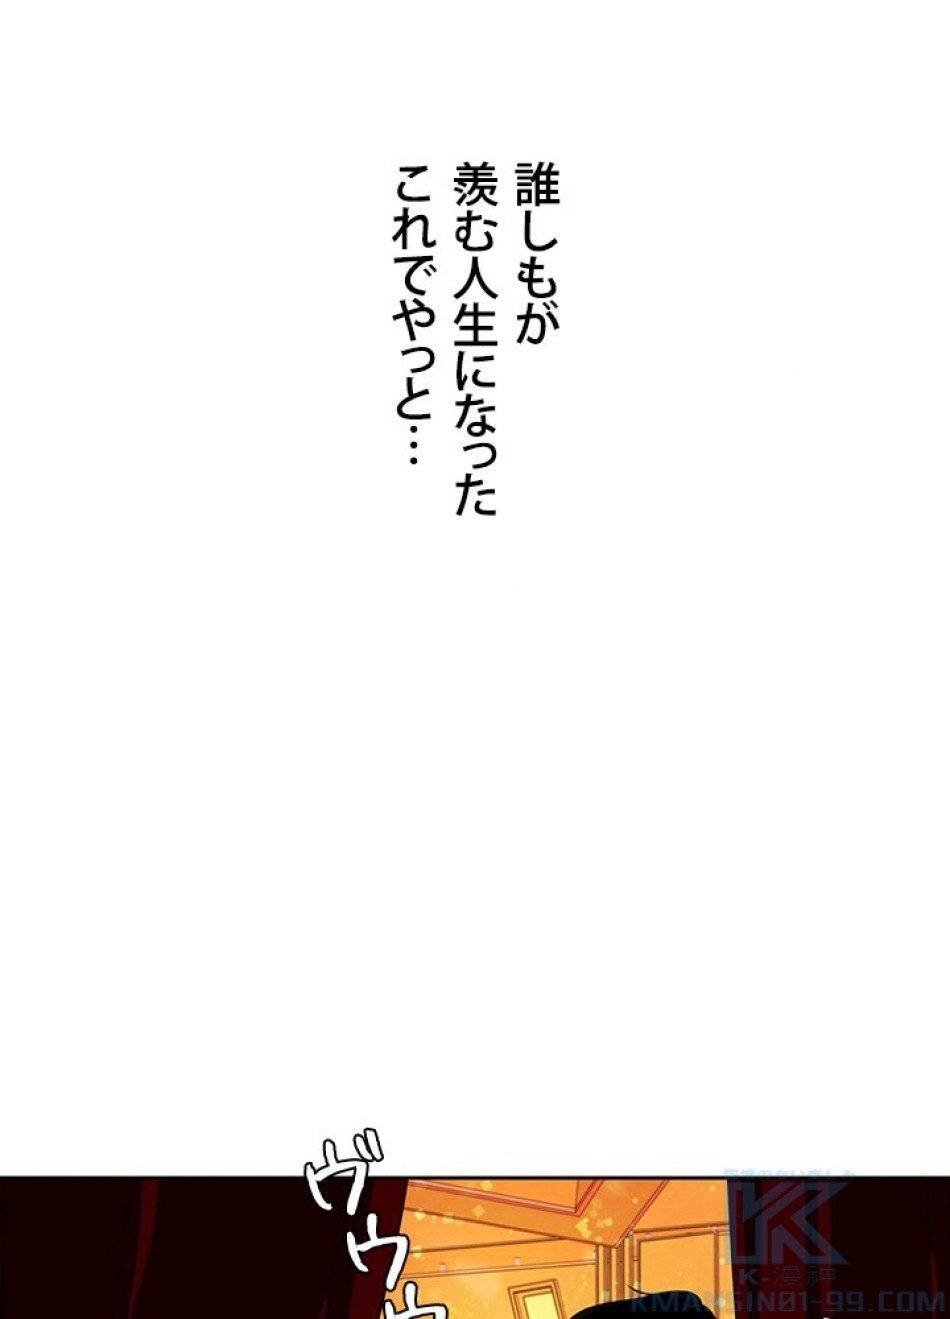 誰しもが
羨む人生になった
これでやっと…
ヴゥゥ
K-漫神
KMANSIN01-99.COM